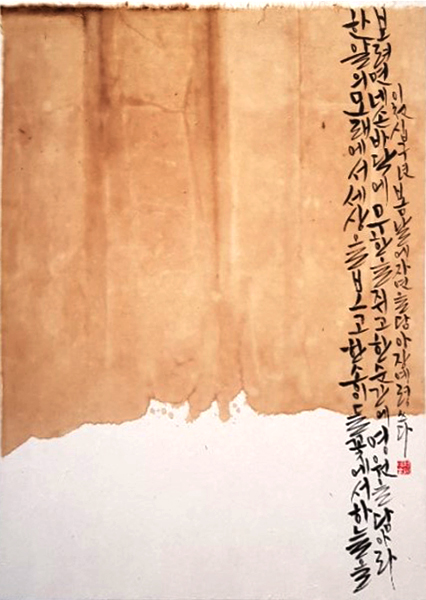 한 알의 모래에서 세상을 보고 한 송이 들꽃에서 하늘을
보려면 네 손바닥에 무한을 쥐고 한 순간에 영원을 담아라
봄날에 자연을 담아 쓰다